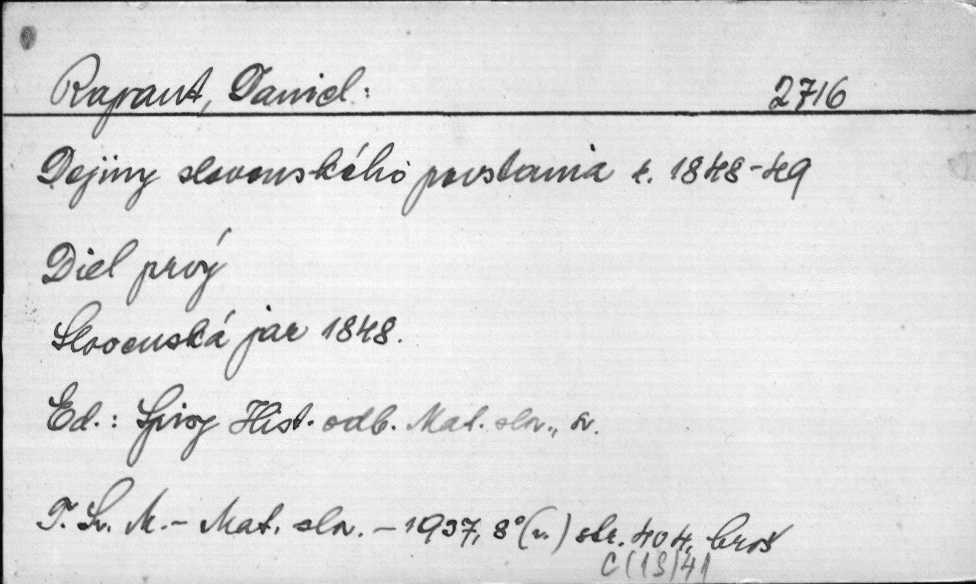 Rapant, Daniel: 2716
Dejiny slovenského povstania r. 1848-49
Diel prvý
Slovenská jar 1848.
Ed.: Spisy Hist. odb. Mat. slov., sv.
T. Sv. M. - Mat. slov. - 1937, 8° (v.) str. 404, brož
C(13)41